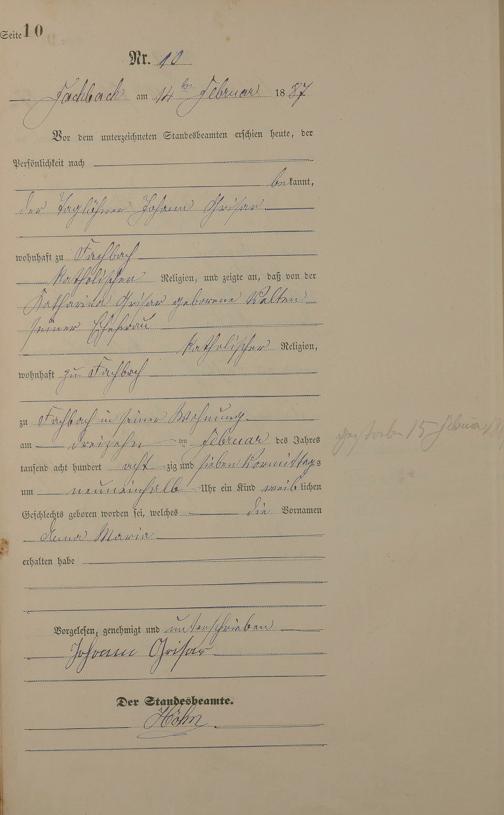 Seite 10
Nr. 10
Fachbach am 14ten Februar 1887
Vor dem unterzeichneten Standesbeamten erschien heute, der
Persönlichkeit nach
bekannt,
der Taglöhner Johann Grisar
wohnhaft zu Fachbach
katholischen Religion, und zeigte an, daß von der
Katharina Grisar geborene Kalten
seiner Ehefrau
katholischer Religion,
wohnhaft zu Fachbach
zu Fachbach in seiner Wohnung
am dreizehn ten Februar des Jahres
tausend acht hundert acht zig und sieben Vormittags
um neuneinhalb Uhr ein Kind weiblichen
Geschlechts geboren worden sei, welches die Vornamen
Anna Maria
erhalten habe
Vorgelesen, genehmigt und unterschrieben
Johann Grisar
Der Standesbeamte.
Höhn
gestorben 15 Februar